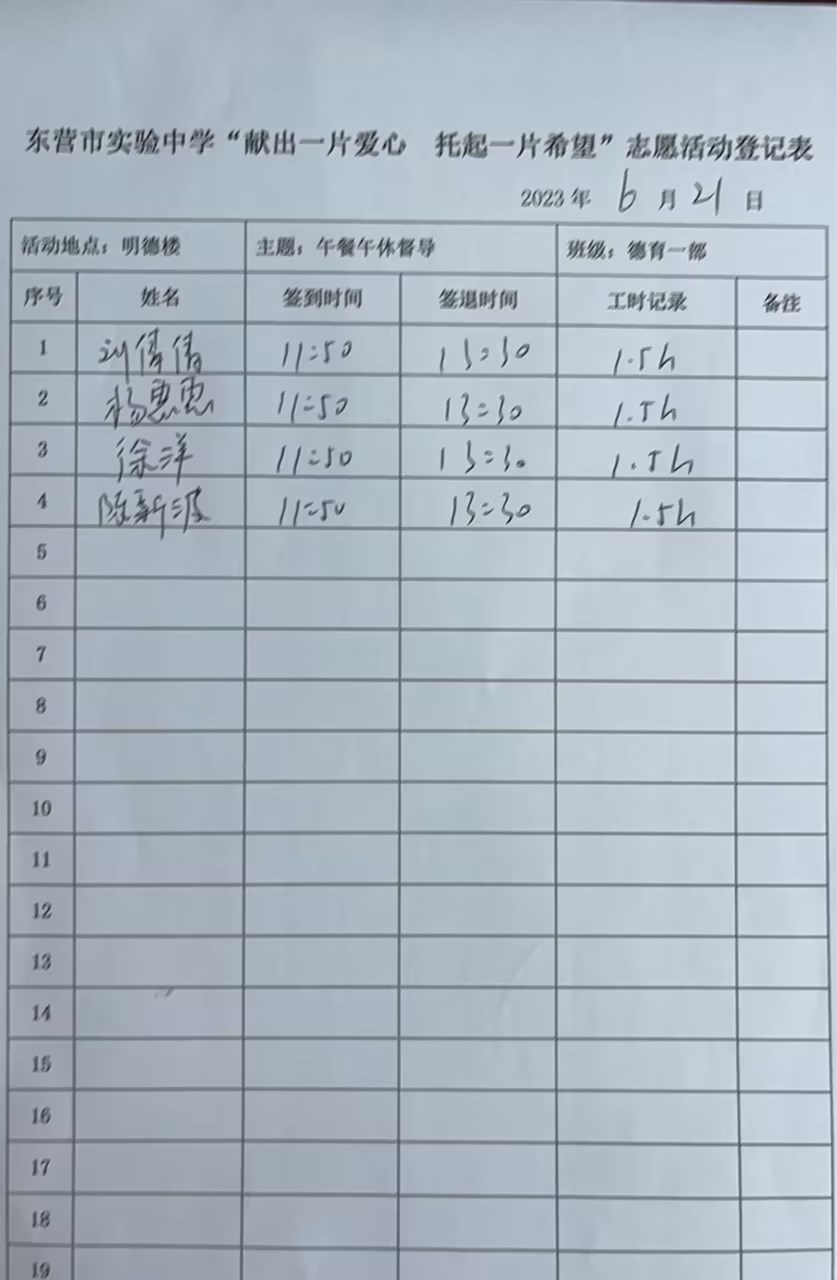 东营市实验中学“献出一片爱心 托起一片希望”志愿活动登记表
2023年 6 月 21 日
活动地点：明德楼 主题：午餐午休督导 班级：德育一部
序号 姓名 签到时间 签退时间 工时记录 备注
1 刘倩倩 11:50 13:30 1.5h
2 杨惠惠 11:50 13:30 1.5h
3 徐洋 11:50 13:30 1.5h
4 陈新波 11:50 13:30 1.5h
5
6
7
8
9
10
11
12
13
14
15
16
17
18
19